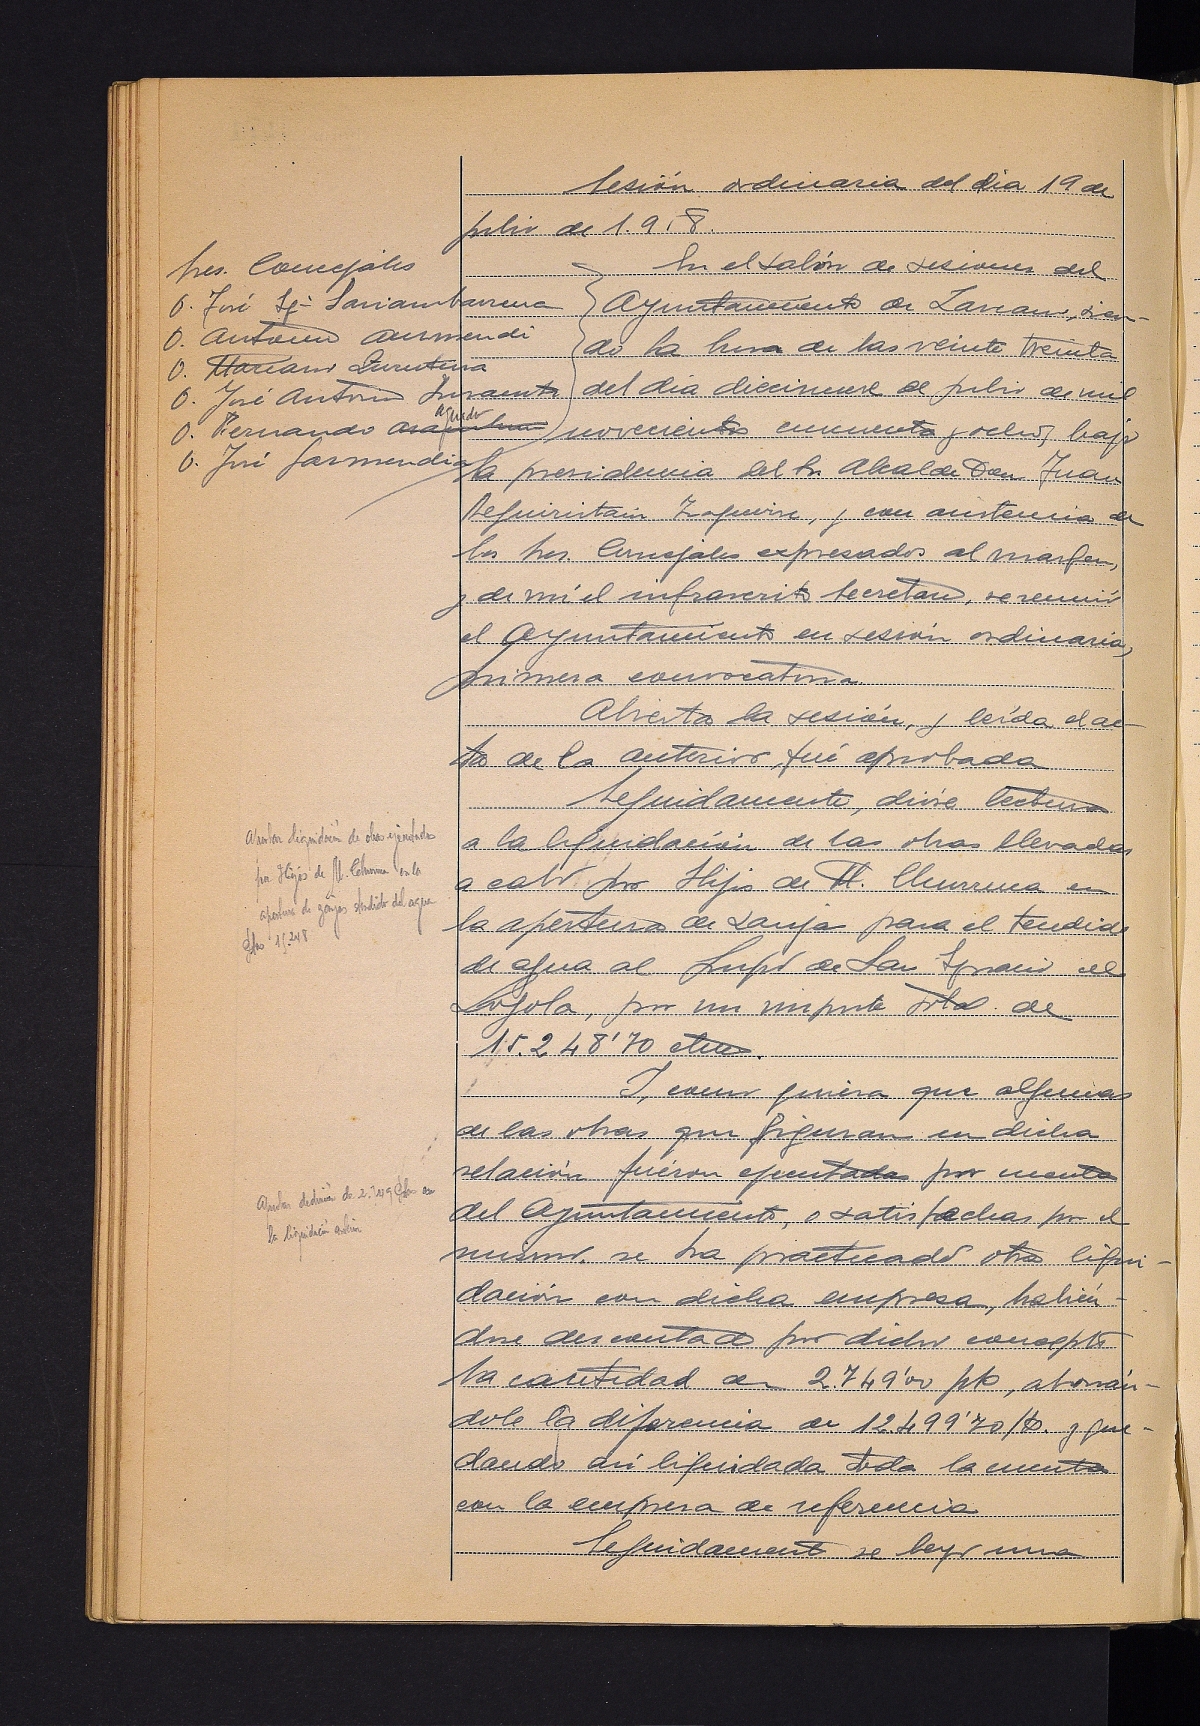 Sesión ordinaria del dia 19 de
julio de 1.958.
Sres. Concejales
D. José Igº Sarriambarrena
D. Antonio Aurmendi
D. Mariano Zurutuza
D. José Antonio
D. Fernando Aguado
D. José Garmendia
En el salón de sesiones del
Ayuntamiento de Lazcano, sien-
do la hora de las veinte treinta
del dia diecinueve de julio de mil
novecientos cincuenta y ocho, bajo
la presidencia del Sr. Alcalde Don Juan
Beguiristain Izaguirre, y con asistencia de
los Sres. Concejales expresados al margen,
y de mi el infrascrito Secretario, se reunió
el Ayuntamiento en sesión ordinaria,
primera convocatoria
Abierta la sesión, y leída el ac-
ta de la anterior, fué aprobada
Seguidamente, dióse lectura
a la liquidación de las obras llevadas
a cabo por Hijos de M. Churruca en
la apertura de zanja para el tendido
de agua al Grupo de San Ignacio de
Loyola, por un importe total de
15.248'70 ctms.
Y, como quiera que algunas
de las obras que figuran en dicha
relación fueron ejecutadas por cuenta
del Ayuntamiento, o satisfechas por el
mismo, se ha practicado otra liqui-
dación con dicha empresa, habién-
dose descontado por dicho concepto
la cantidad de 2.749'00 pts, abonán-
dole la diferencia de 12.499'70 pts. y que-
dando asi liquidada toda la cuenta
con la empresa de referencia
Seguidamente se leyó una
Aprobar liquidación de obras ejecutadas
por Hijos de M. en la
apertura de zanjas tendido del agua
Ptas 15.248
Aprobar deducción de 2.749 Ptas en
la liquidación